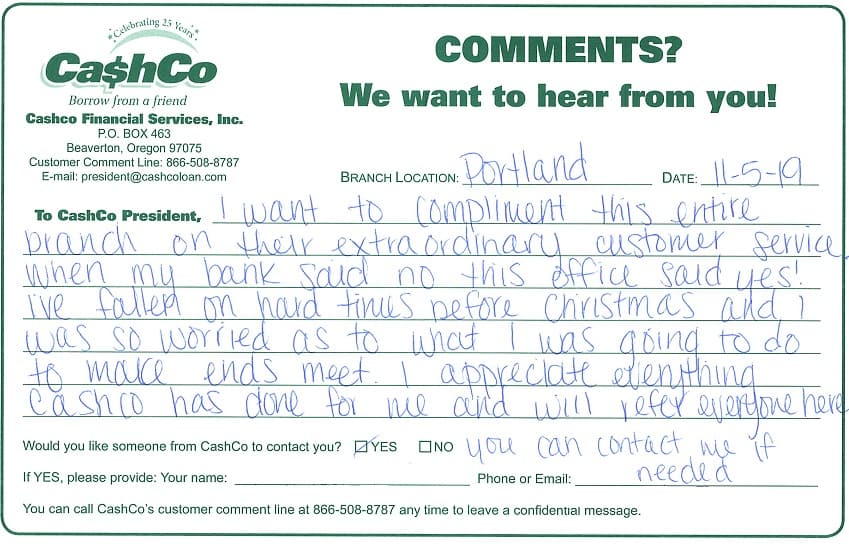 Celebrating 25 Years
Ca$hCo
Borrow from a friend
Cashco Financial Services, Inc.
P.O. BOX 463
Beaverton, Oregon 97075
Customer Comment Line: 866-508-8787
E-mail: president@cashcoloan.com
COMMENTS?
We want to hear from you!
BRANCH LOCATION: Portland DATE: 11-5-19
To CashCo President, I want to compliment this entire
branch on their extraordinary customer service,
when my bank said no this office said yes!
I've fallen on hard times before Christmas and I
was so worried as to what I was going to do
to make ends meet. I appreciate everything
Cashco has done for me and will refer everyone here
Would you like someone from CashCo to contact you? ☑YES ☐NO you can contact me if
needed
If YES, please provide: Your name: Phone or Email:
You can call CashCo's customer comment line at 866-508-8787 any time to leave a confidential message.